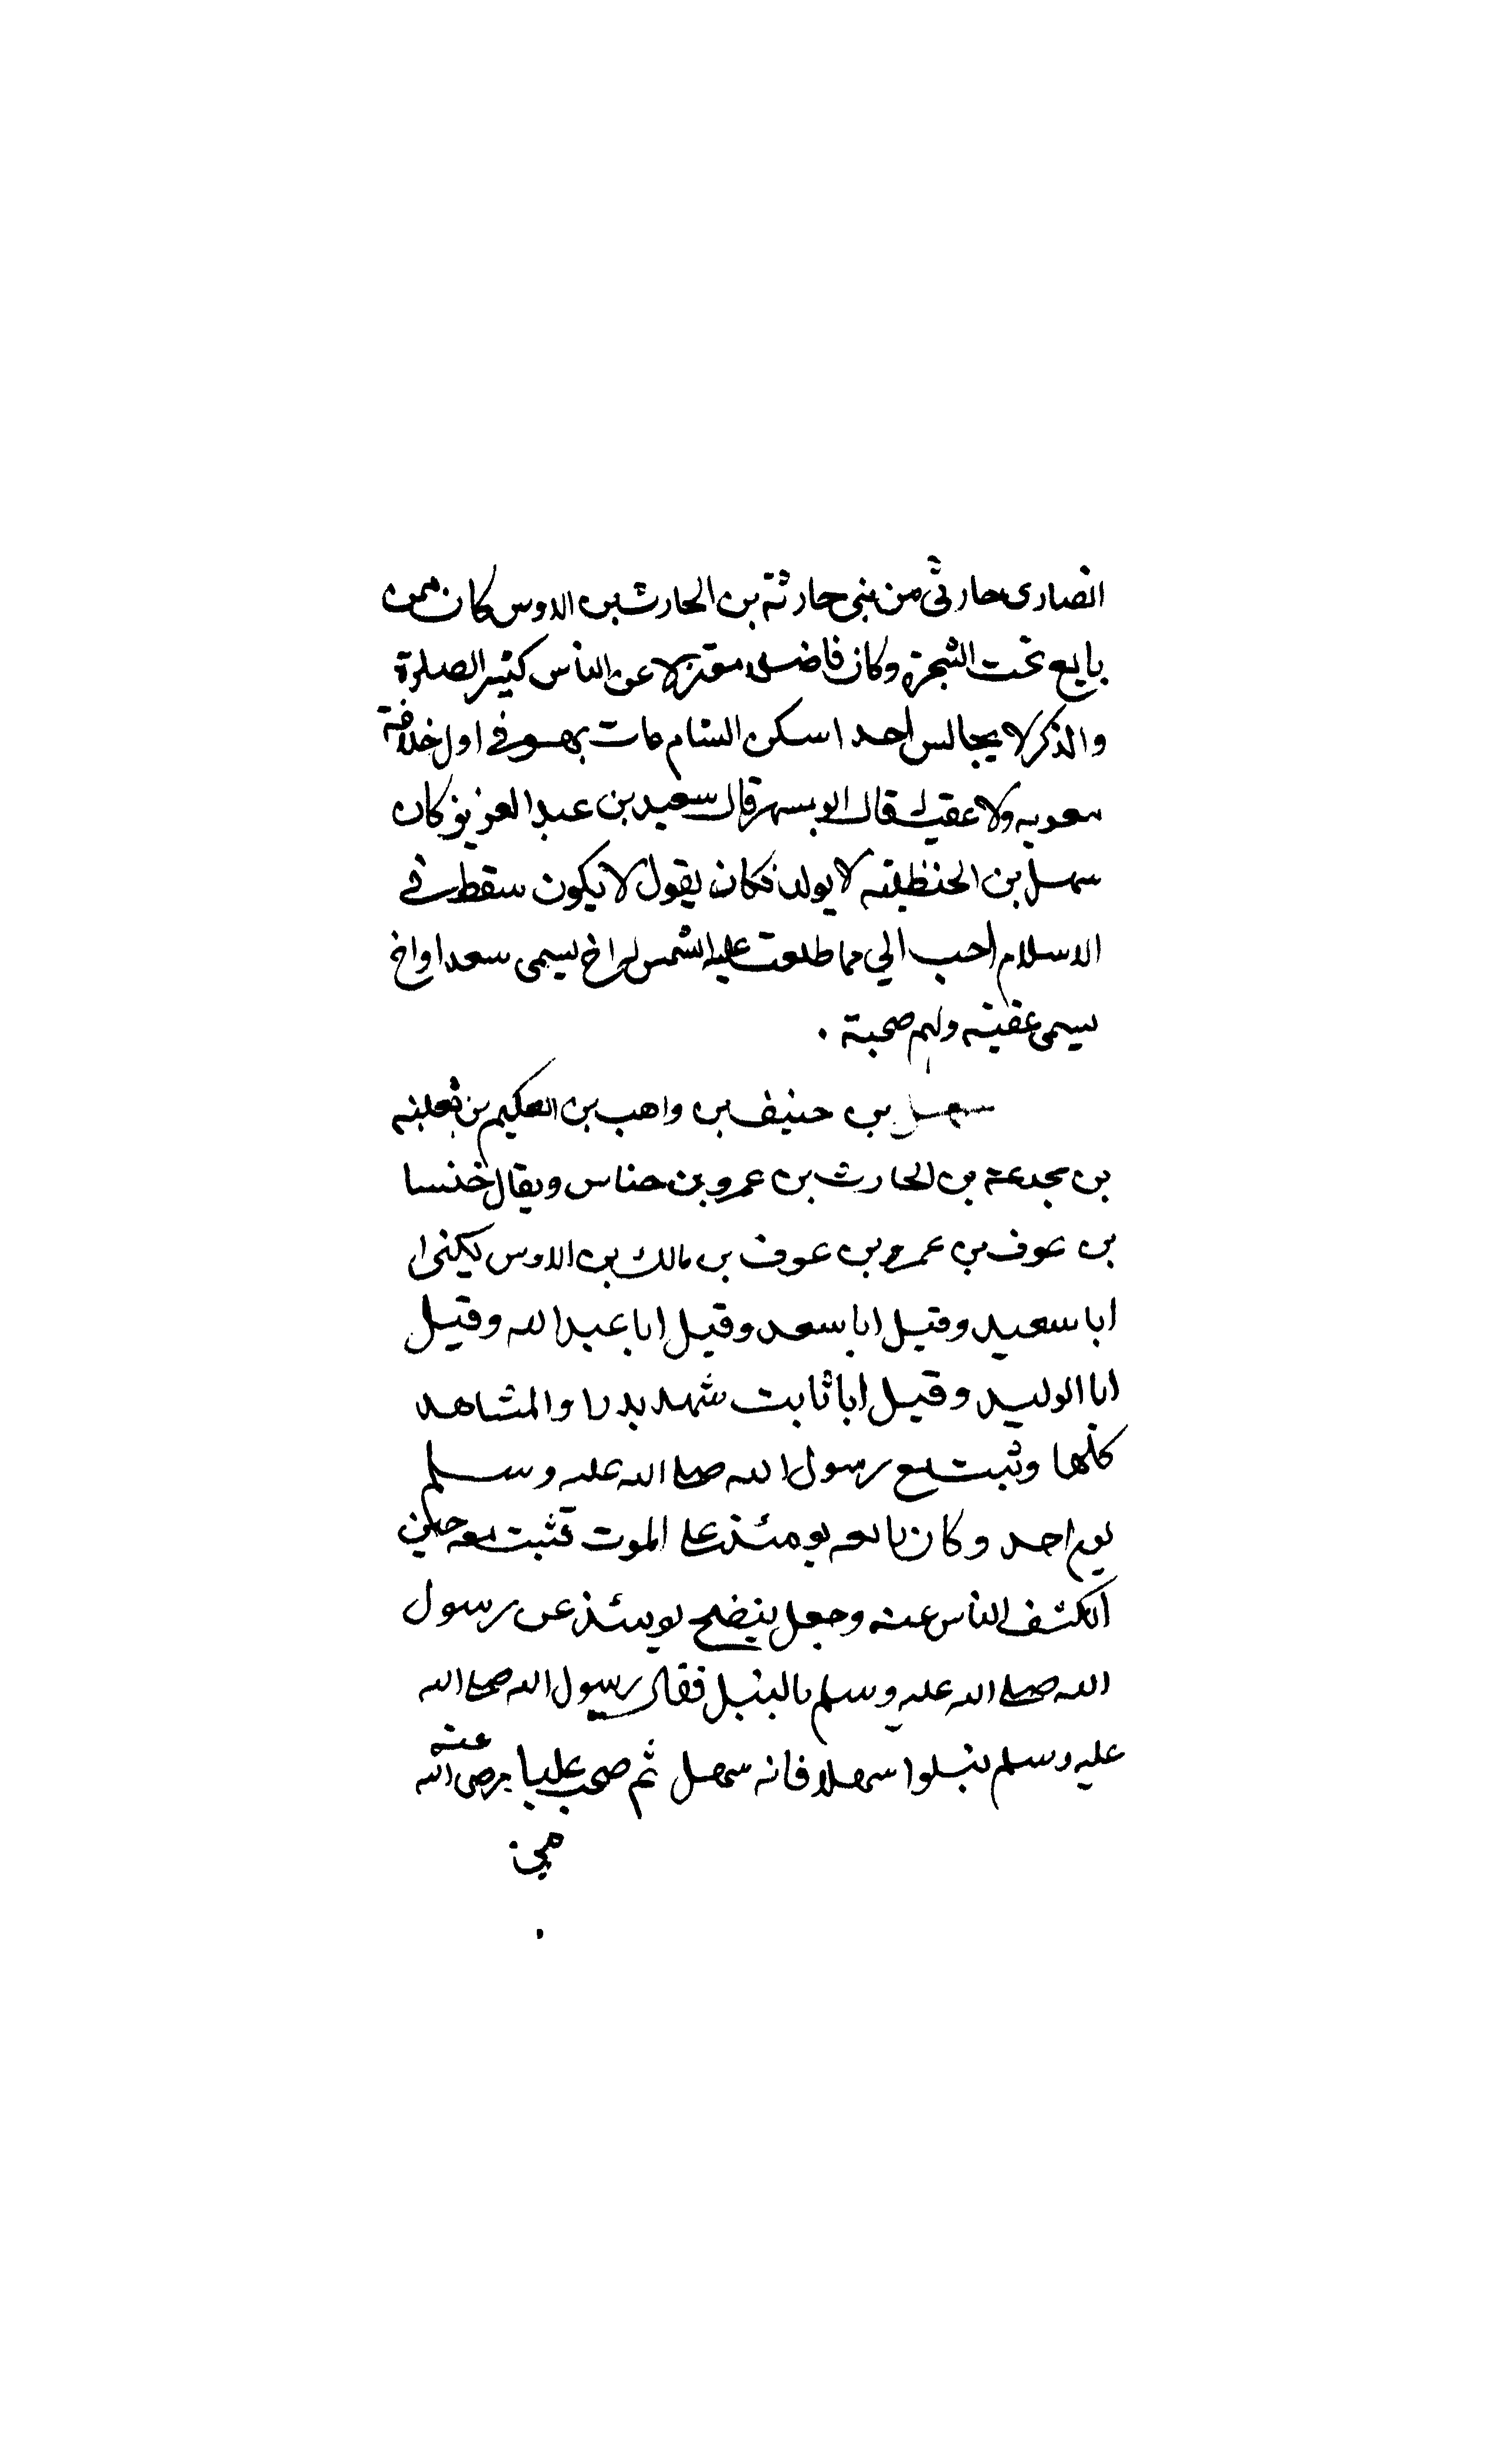 انصارى حارثي من بنى حارثة بن الحارث بن الاوس كان ممن
بايع تحت الشجرة وكان فاضلا معتزلا عن الناس كثير الصلوة
والذكر لا يجالس احدا سكن الشام مات بها في اول خلافة
معوية ولا عقب له قال ابو مسهر قال سعيد بن عبد العزيز كان
سهل بن الحنظلية لا يولد فكان يقول لا يكون سقط في
الاسلام احب الي مما طلعت عليه الشمس له اخ يسمى سعدا واخ
يسمى عقبة ولهم صحبة .
سهل بن حنيف بن واهب بن العكيم بن ثعلبة
بن مجدعة بن الحارث بن عمرو بن حناس ويقال خنسا
بن عوف بن عمرو بن عوف بن مالك بن الاوس يكنى ا
ابا سعيد وقيل ابا سعد وقيل ابا عبد الله وقيل
ابا الوليد وقيل ابا ثابت شهد بدرا والمشاهد
كلها وثبت مع رسول الله صلى الله عليه وسلم
يوم احد وكان بايعه يومئذ على الموت فثبت معه حين
انكشف الناس عنه وجعل ينضح يومئذ عن رسول
الله صلى الله عليه وسلم بالنبل فقال رسول الله صلى الله
عليه وسلم نبلوا سهلا فانه سهل ثم صحب عليا رضى الله عنه